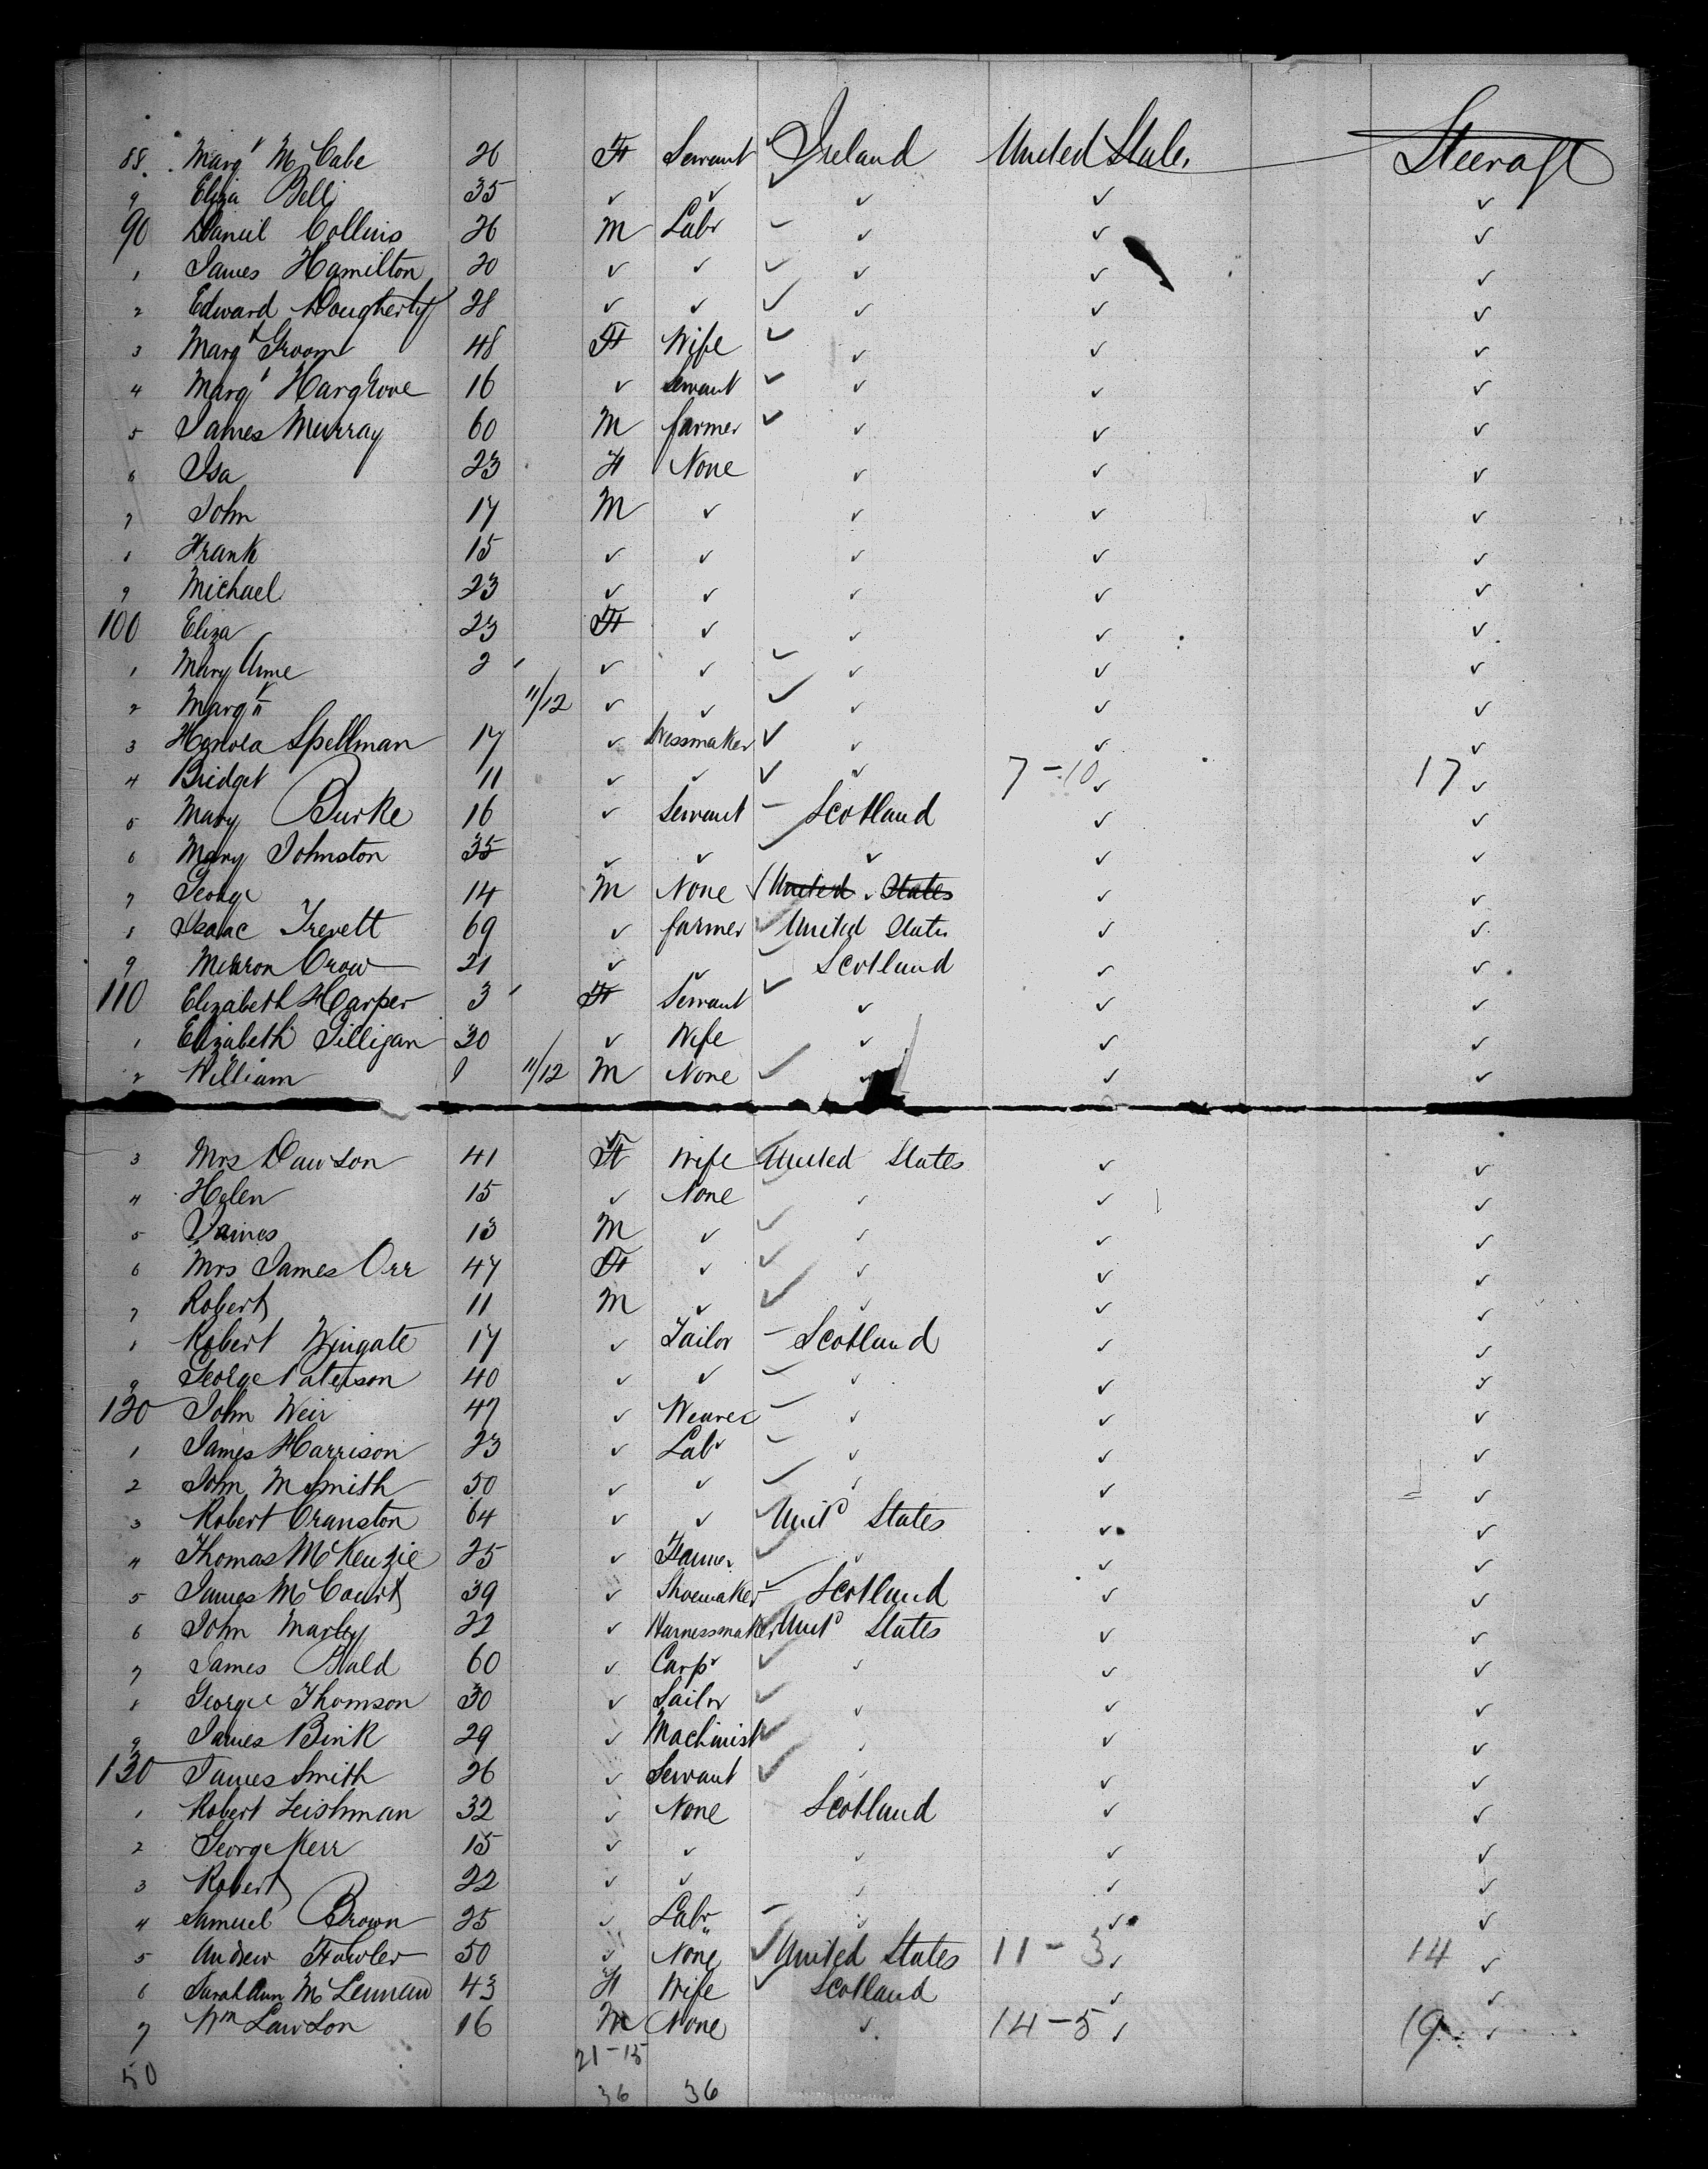 88 Margt McCabe 26 F Servant ✓ Ireland United States Steerage
9 Eliza Bell 35 ✓ ✓ ✓ ✓ ✓ ✓
90 Daniel Collins 26 M Labr – ✓ ✓ ✓
1 James Hamilton 20 ✓ ✓ ✓ ✓ ✓ ✓
2 Edward Dougherty 28 ✓ ✓ ✓ ✓ ✓ ✓
3 Margt Groom 48 F Wife ✓ ✓ ✓ ✓
4 Margt Hargrove 16 ✓ Servant ✓ ✓ ✓ ✓
5 James Murray 60 M farmer ✓ ✓ ✓ ✓
6 Isa 23 F None ✓ ✓ ✓
7 John 17 M ✓ ✓ ✓ ✓
8 Frank 15 ✓ ✓ ✓ ✓ ✓
9 Michael 23 ✓ ✓ ✓ ✓ ✓
100 Eliza 23 F ✓ ✓ ✓ ✓
1 Mary Anne 2 ✓ ✓ ✓ ✓ ✓ ✓
2 Margt 11/12 ✓ ✓ ✓ ✓ ✓ ✓
3 Honora Spellman 17 ✓ Dressmaker ✓ ✓ ✓ ✓
4 Bridget 11 ✓ ✓ ✓ ✓ 7-10 ✓ 17 ✓
5 Mary Burke 16 ✓ Servant – Scotland ✓ ✓
6 Mary Johnston 35 ✓ ✓ ✓ ✓ ✓ ✓
7 George 14 M None ✓ United States ✓ ✓
8 Isaac Trevett 69 ✓ farmer ✓ United States ✓ ✓
9 Crow 21 ✓ ✓ – Scotland ✓ ✓
110 Elizabeth Harper 3 F Servant ✓ ✓ ✓ ✓
1 Elizabeth Gilligan 30 ✓ Wife ✓ ✓ ✓
2 William 11/12 M None ✓ ✓ ✓ ✓
3 Mrs Dawson 41 F Wife ✓ United States ✓ ✓
4 Helen 15 ✓ None ✓ ✓ ✓
5 James 13 M ✓ ✓ ✓ ✓ ✓
6 Mrs James Orr 47 F ✓ ✓ ✓ ✓ ✓
7 Robert 11 M ✓ ✓ ✓ ✓ ✓
8 Robert Wingate 17 ✓ Tailor – Scotland ✓ ✓
9 George Paterson 40 ✓ ✓ – ✓ ✓ ✓
120 John Weir 47 ✓ Weaver – ✓ ✓ ✓
1 James Harrison 23 ✓ Labr – ✓ ✓ ✓
2 John McSmith 50 ✓ ✓ ✓ ✓ ✓ ✓
3 Robert Cranston 64 ✓ ✓ ✓ Unitd States ✓ ✓
4 Thomas McKenzie 25 ✓ Farmer ✓ ✓ ✓ ✓
5 James McCourt 39 ✓ Shoemaker ✓ Scotland ✓ ✓
6 John Marley 22 ✓ Harnessmaker ✓ Unitd States ✓ ✓
7 James Bald 60 ✓ Carpr ✓ ✓ ✓ ✓
8 George Thomson 30 ✓ Sailor ✓ ✓ ✓ ✓
9 James Bink 29 ✓ Machinist ✓ ✓ ✓ ✓
130 James Smith 26 ✓ Servant ✓ ✓ ✓ ✓
1 Robert Leishman 32 ✓ None Scotland ✓ ✓
2 George Kerr 15 ✓ ✓ ✓ ✓ ✓
3 Robert 22 ✓ ✓ ✓ ✓ ✓
4 Samuel Brown 25 ✓ Labr – ✓ ✓ ✓
5 Andrew Fowler 50 ✓ None ✓ United States 11-3 ✓ 14 ✓
6 Sarah Ann McLennan 43 F Wife ✓ Scotland ✓ ✓
7 Wm Lawson 16 M None ✓ 14-5 ✓ 19 ✓
50 21-15
36 36